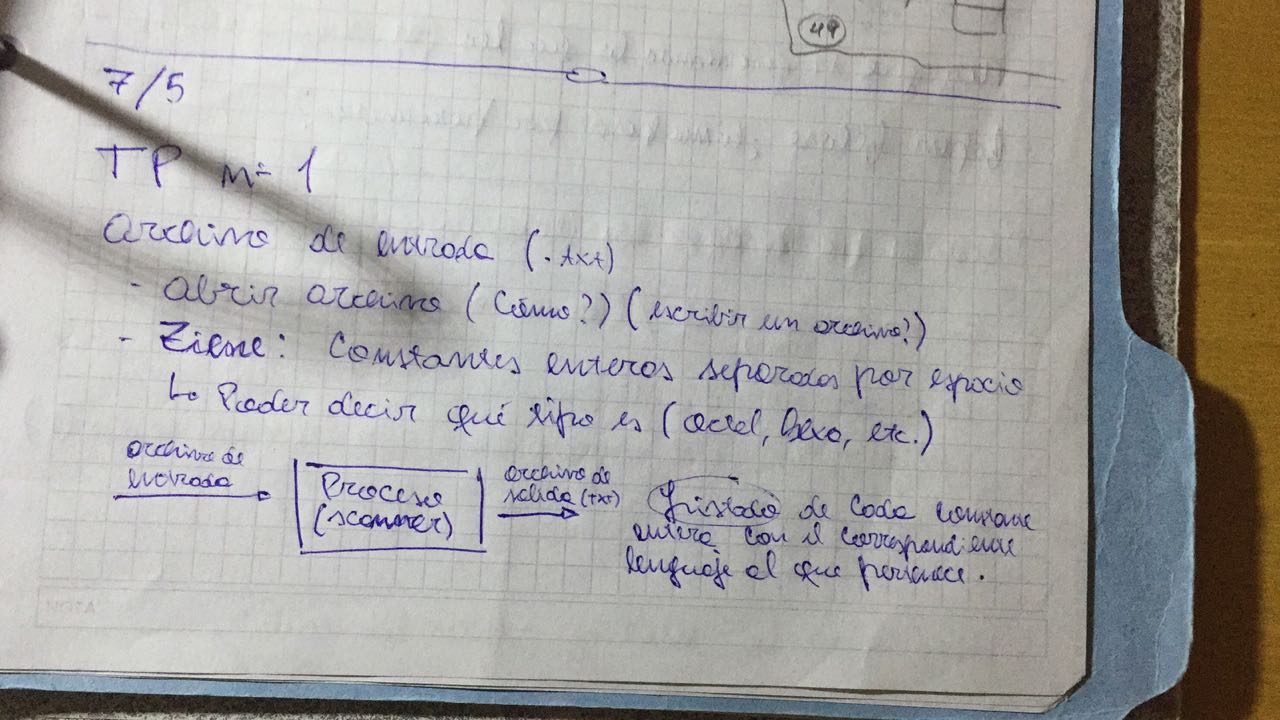 49
7/5
TP Nº 1
Archivo de entrada (.txt)
- Abrir archivo (Cómo?) (escribir un archivo?)
- Tiene: Constantes enteras separadas por espacio
↳ Poder decir qué tipo es (octal, hexa, etc.)
archivo de
entrada
Proceso
(scanner)
archivo de
salida (txt)
Listado de cada constante
entera con el correspondiente
lenguaje al que pertenece.